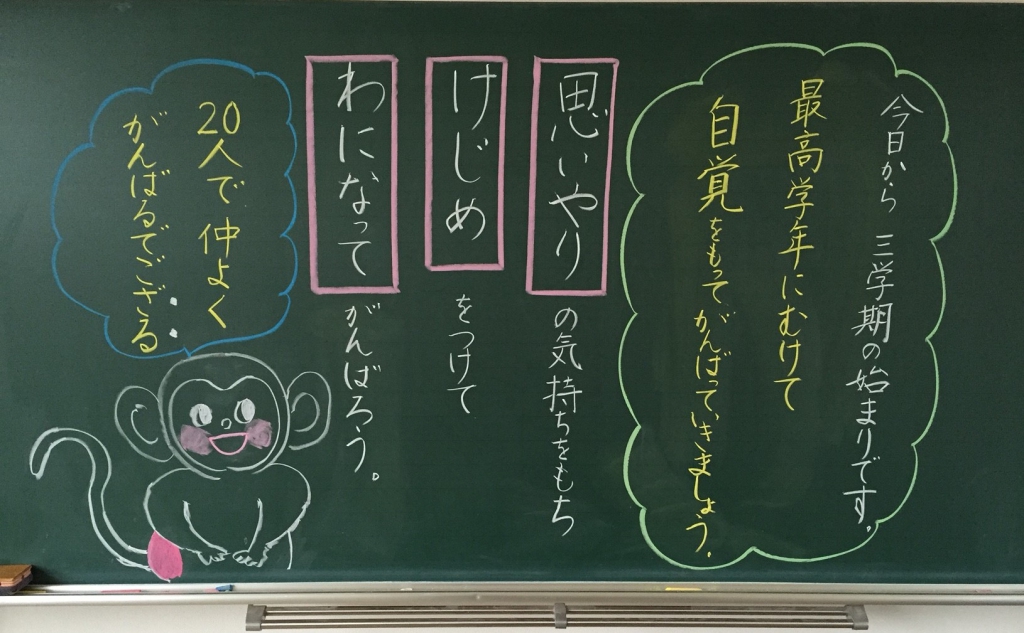 今日から 三学期の始まりです。
最高学年にむけて
自覚をもってがんばっていきましょう。
思いやりの気持ちをもち
けじめをつけて
わになってがんばろう。
20人で仲よく
がんばるでござる